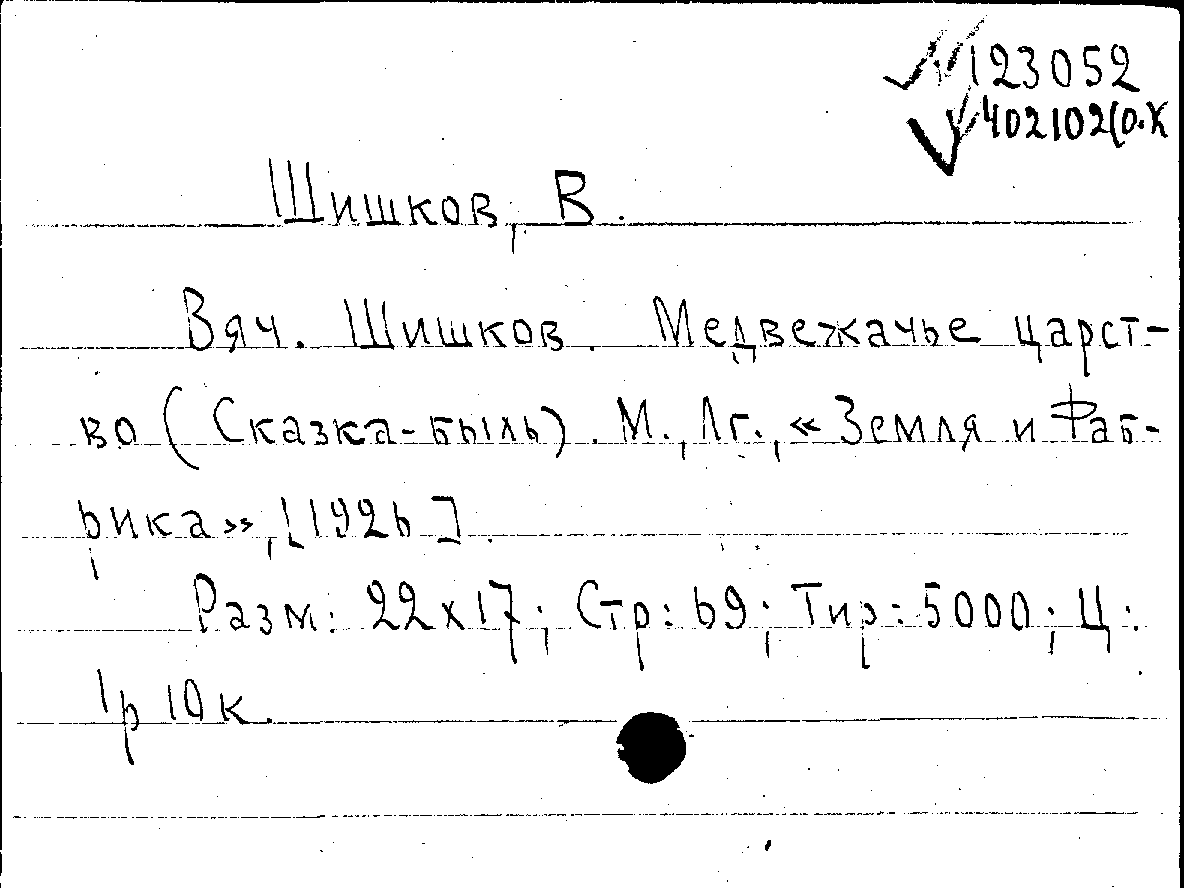 N 123052
V 402102(о.К
Шишков, В.
Вяч. Шишков. Медвежачье царст-
во (Сказка-быль). М., Лг., «Земля и Фаб-
рика», [1926].
Разм: 22х17; Стр: 69; Тир: 5000; Ц:
1р 10к.